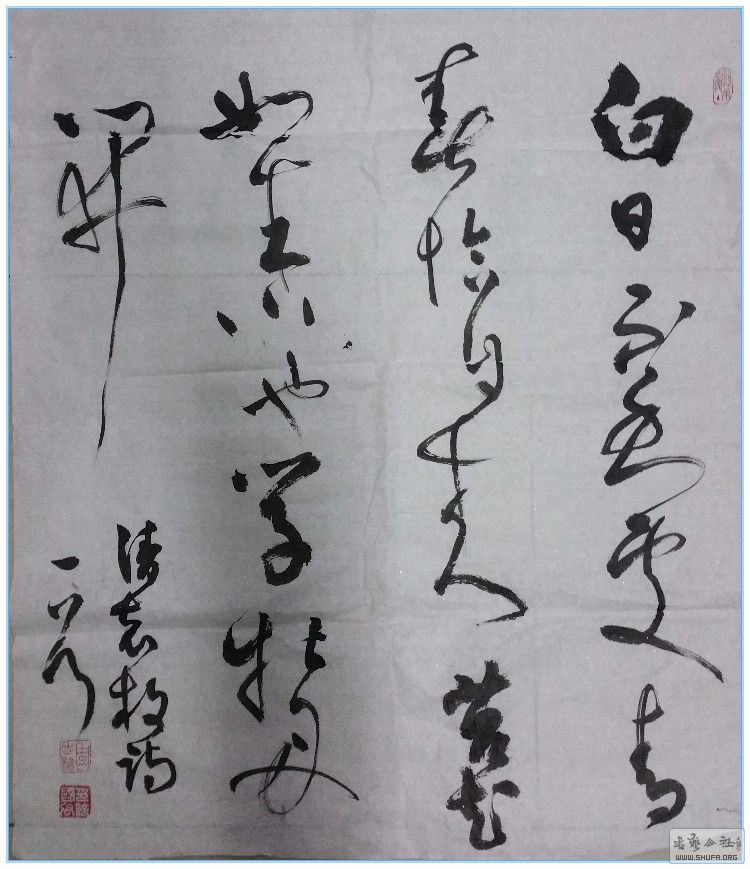 白日不到处青
春恰自来苔花
如米小也学牡丹
开
清袁枚诗
书艺公社
WWW.SHUFA.ORG